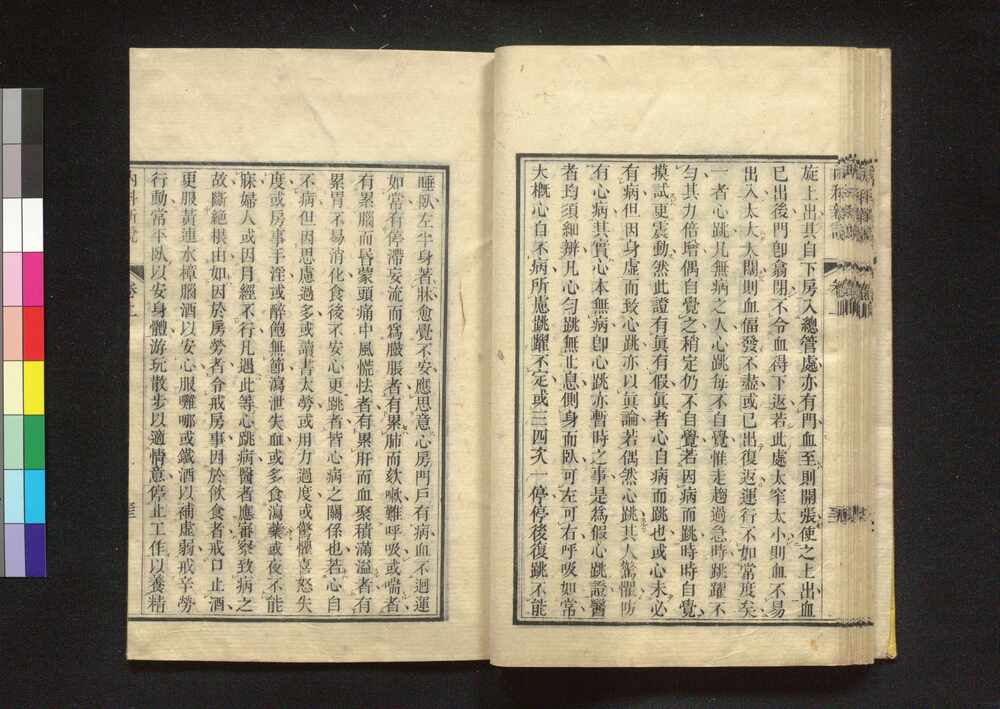 旋上出其自下房入總管處亦有門血至則開張使之上出血
已出後門卽翕閉不令血得下返若此處太窄太小則血不易
出入太大太闊則血偪發不盡或已出復返運行不如常度矣
一者心跳凡無病之人心跳每不自覺惟走趨過急時跳躍不
勻其力倍增偶自覺之稍定仍不自覺若因病而跳時時自覺
摸試更震動然此證有眞有假眞者心自病而跳也或心未必
有病但因身虛而致心跳亦以眞論若偶然心跳其人驚懼昉
有心病其實心本無病卽心跳亦暫時之事是爲假心跳證醫
者均須細辨凡心勻跳無止息側身而臥可左可右呼吸如常
大概心自不病所慮跳躍不定或三四次一停停後復跳不能
睡臥左半身著牀愈覺不安應思意心房門戶有病血不迴運
如常有停滯妄流而爲臌脹者有累肺而欬嗽難呼吸或喘者
有累腦而昏蒙頭痛中風慌怯者有累肝而血聚積滿溢者有
累胃不易消化食後不安心更跳者皆心病之關係也若心自
不病但因思慮過多或讀書太勞或用力過度或驚懼喜怒失
度或房事手淫或醉飽無節瀉泄失血或多食瀉藥或夜不能
寐婦人或因月經不行凡遇此等心跳病醫者應審察致病之
故斷絕根由如因於房勞者令戒房事因於飲食者戒口止酒
更服黃連水樟腦酒以安心服囉哪或鐵酒以補虛弱戒辛勞
行動常平臥以安身體游玩散步以適情意停止工作以養精
內科新說 卷上